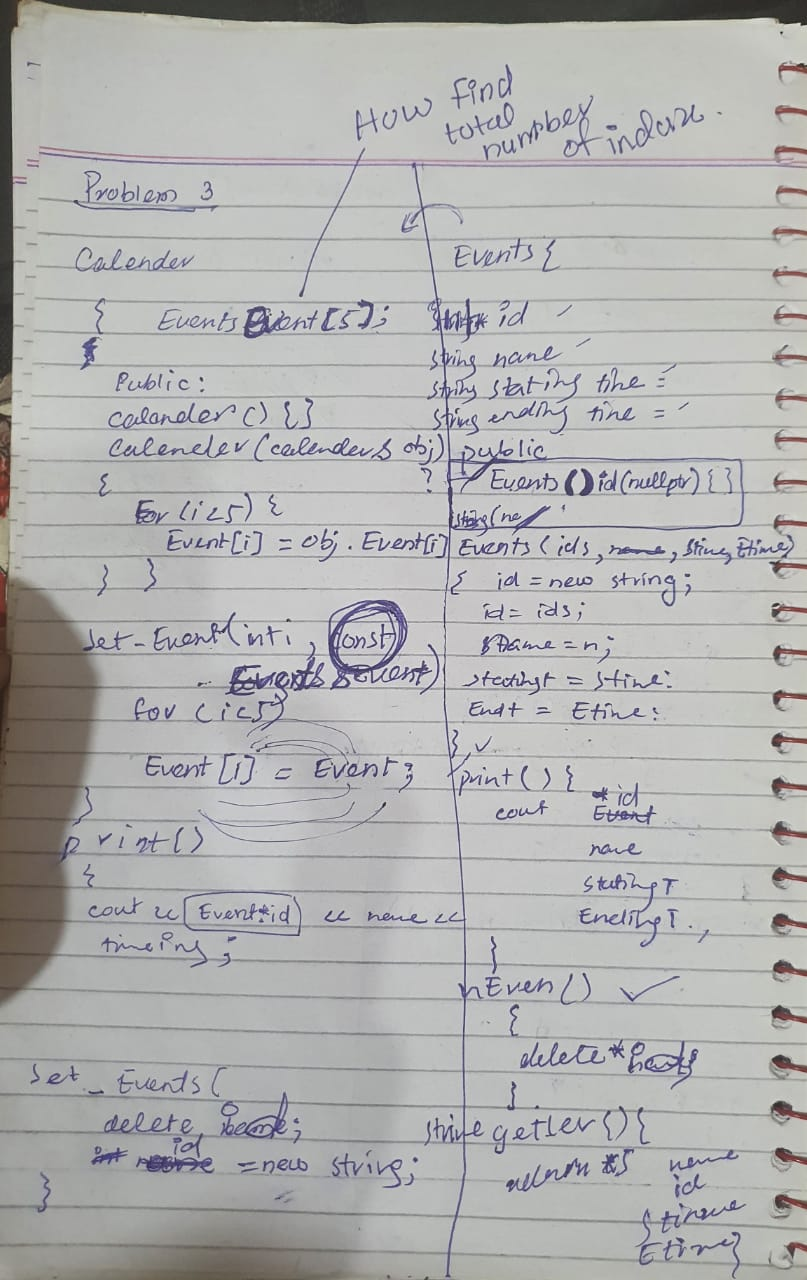 How find
total
number
of index.
Problem 3
Calender
{ Events Event[5];
{
Public:
calander() {}
Calender(calender& obj)
{
for (i<5) {
Event[i] = obj. Event[i]
} }
Set-Event(int i, const
Events &Event)
for (i<5)
Event[i] = Event;
}
print()
{
cout << Event*id << name <<
timeing;
Set_Events(
delete
id = new string;
}
Events {
id
string name
string stating time =
string ending time =
public
? Events() id(nullptr) { }
string(na
Events(ids, name, Stime, Etime)
{ id = new string;
id = ids;
name = n;
stating t = Stime:
End t = Etime:
}
print() {
cout *id
Event
name
stating T
Ending T.,
}
nEven()
{
delete *
}
string getter() {
return *
name
id
Stime
Etime}